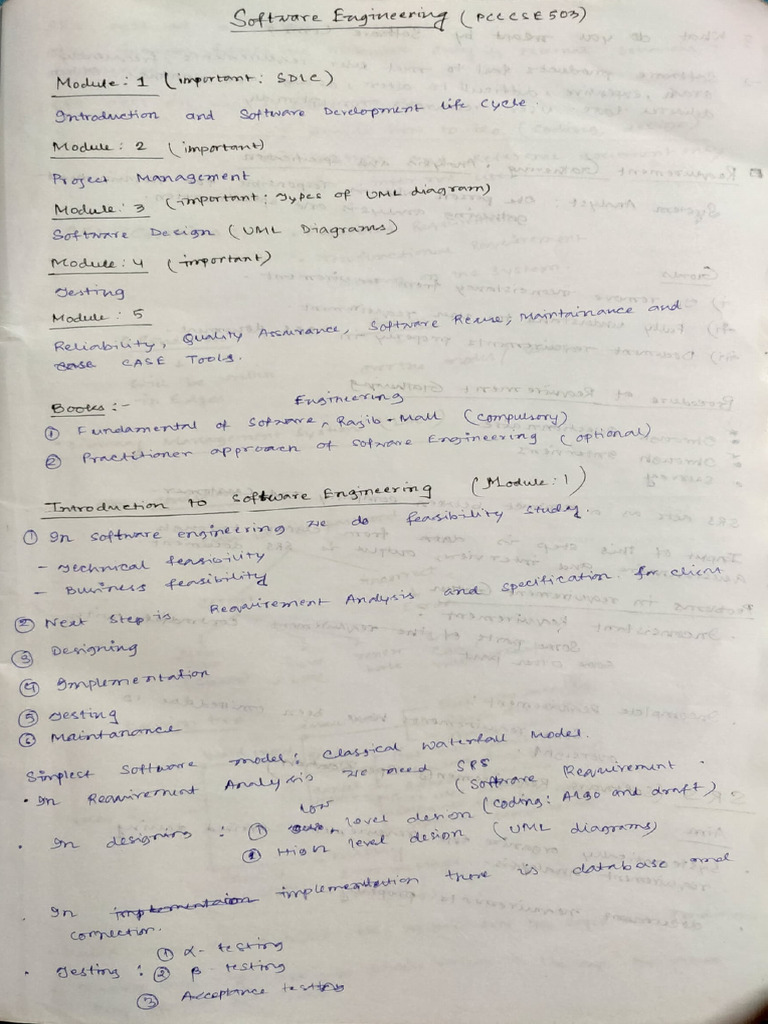 Software Engineering (PCCCSE503)
Module: 1 (important: SDLC)
Introduction and Software Development Life Cycle.
Module: 2 (important)
Project Management
Module: 3 (important: Types of UML diagram)
Software Design (UML Diagrams)
Module: 4 (important)
Testing
Module: 5
Reliability, Quality Assurance, Software Reuse, Maintainance and
CASE Tools.
Books:-
① Fundamental of Software Engineering, Rajib-Mall (compulsory)
② Practitioner approach of Sofware Engineering (optional)
Introduction to Software Engineering (Module: 1)
① In Software engineering we do feasibility study.
- Technical feasibility
- Business feasibility
② Next Step is Requirement Analysis and specification for client
③ Designing
④ Implementation
⑤ Testing
⑥ Maintanance
Simplest Software model: Classical Waterfall Model.
• In Requirement Analysis we need SRS (Software Requirement
• In designing: ① Low level design (coding: Algo and draft)
② High level design (UML diagrams)
• In implementation there is database and
connection.
• Testing: ① α- testing
② β- testing
③ Acceptance testing